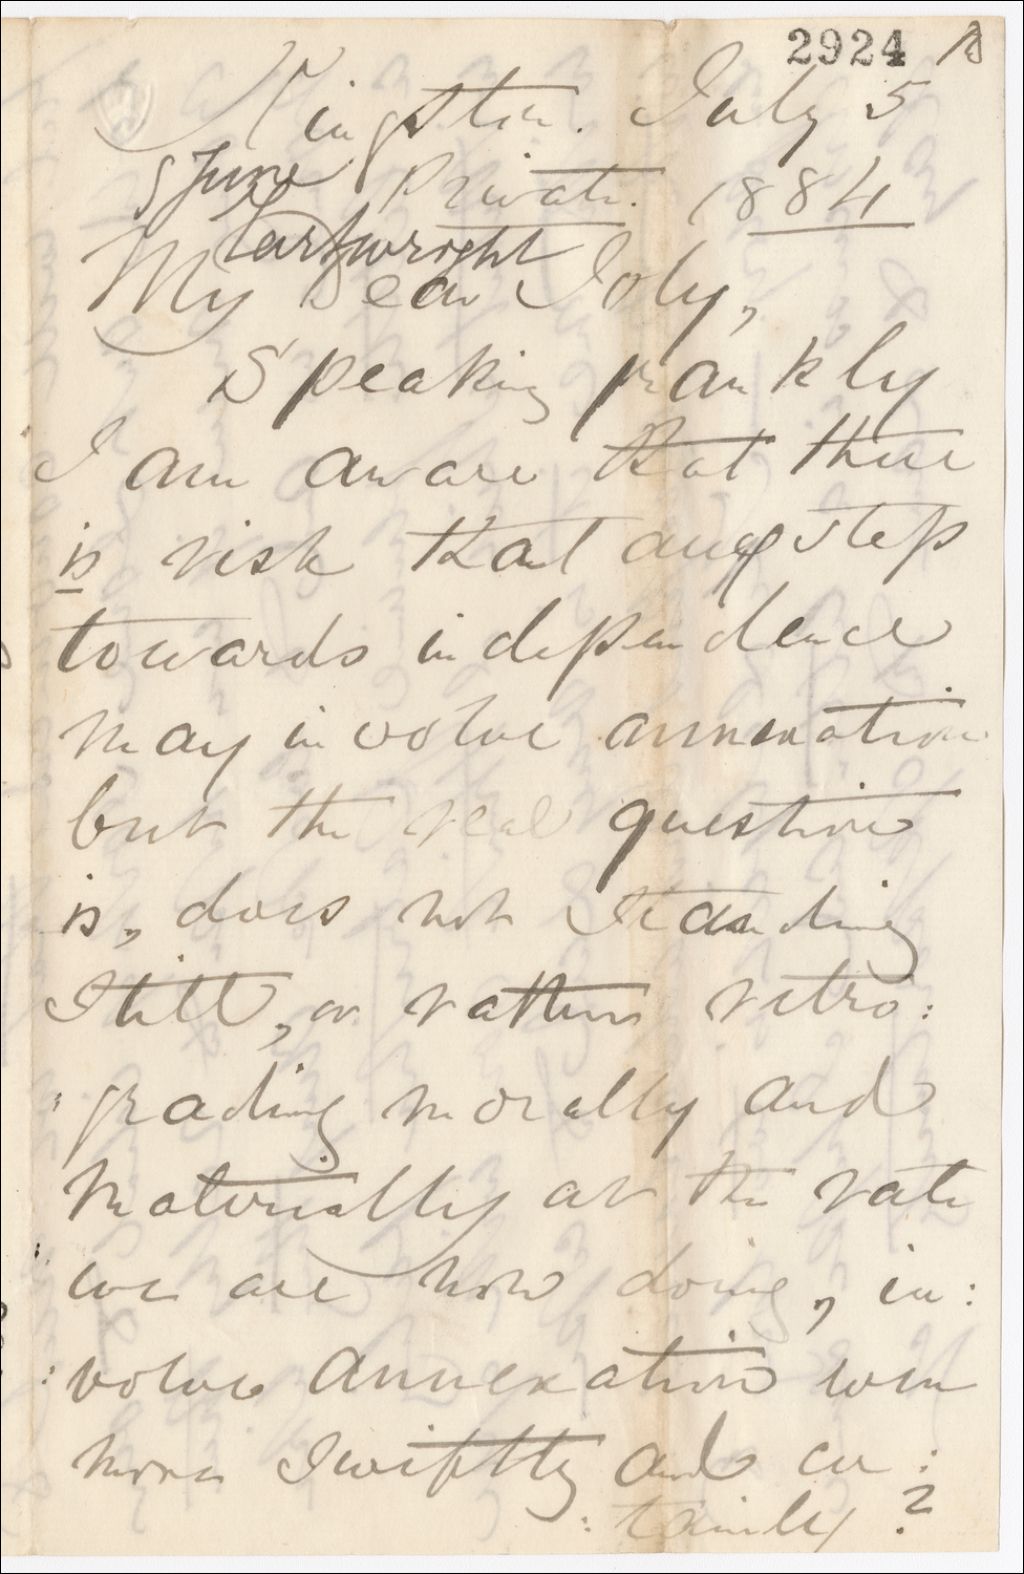 2924
Kingston. July 5
5 June Private. 1884
Cartwright
My Dear Joly,
Speaking frankly
I am aware that there
is risk that any step
towards independence
may involve annexation
but the real question
is, does not standing
still, or rather retro:
:grading morally and
materially at the rate
we are now doing, in:
:volve annexation even
more swiftly and cer:
:tainly?